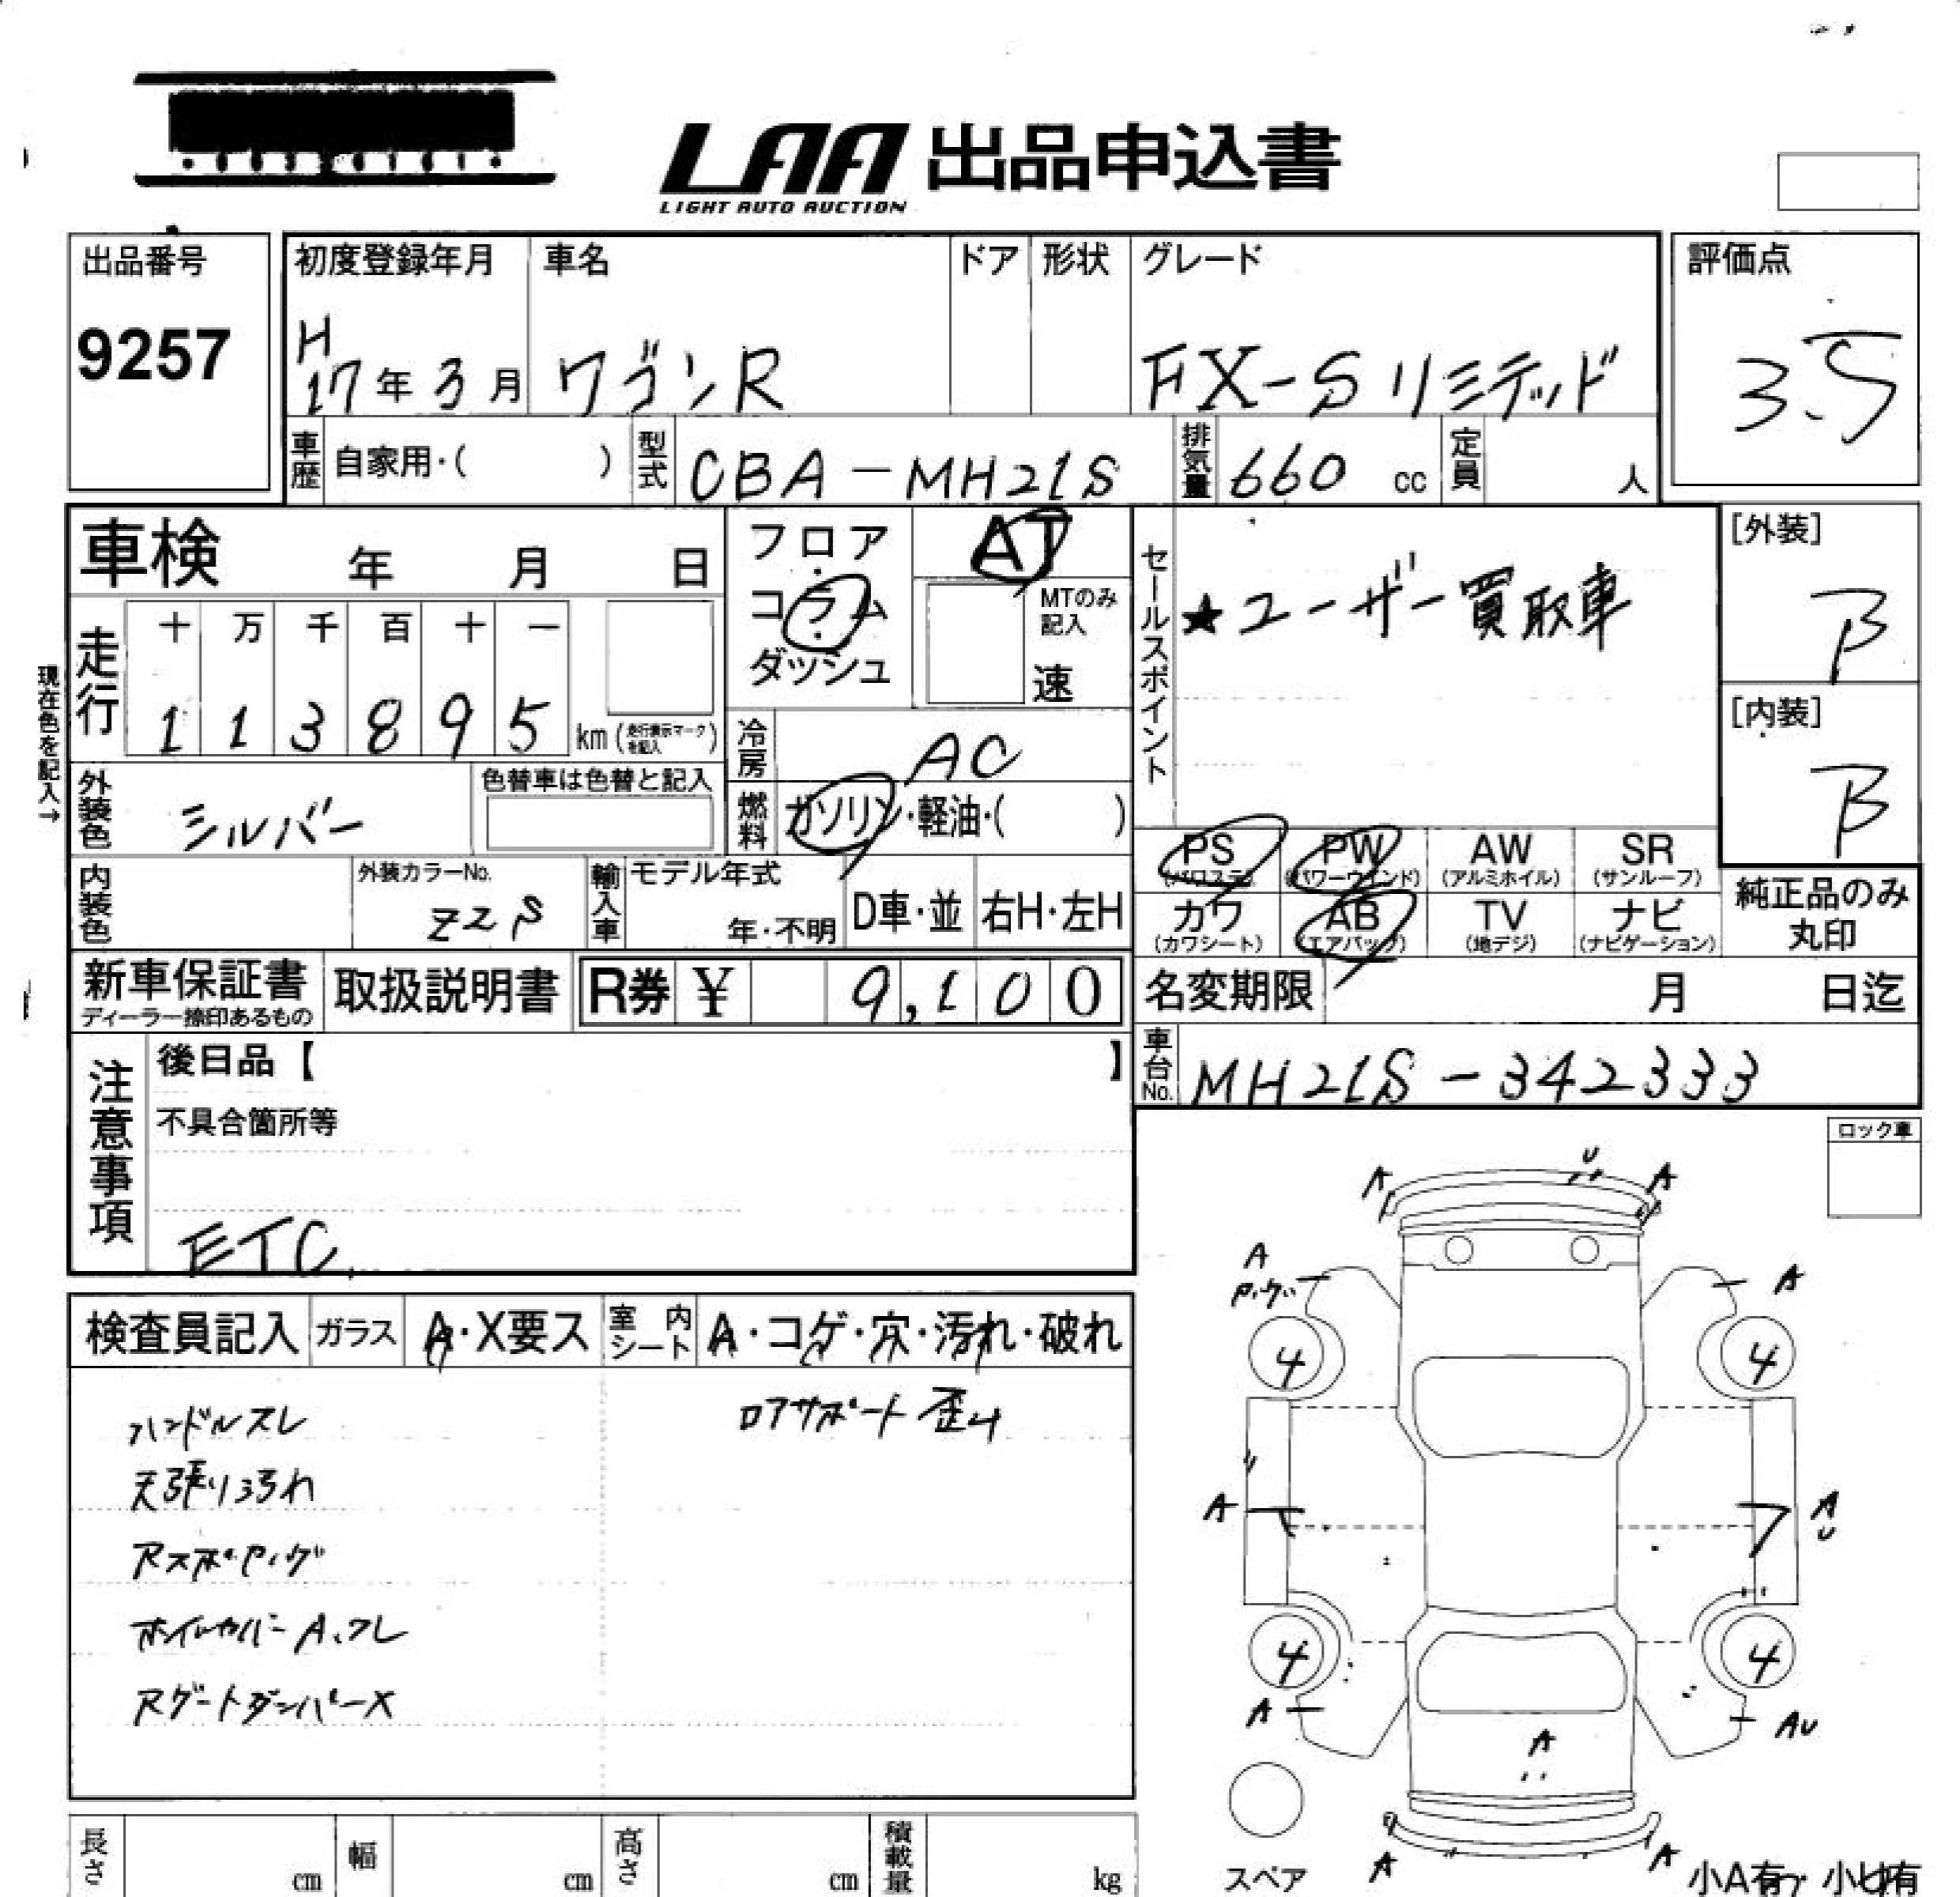 LAA 出品申込書
LIGHT AUTO AUCTION
出品番号
9257
初度登録年月
H
17年3月
車名
ワゴンR
ドア
形状
グレード
FX-Sリミテッド
評価点
3.5
車歴
自家用・( )
型式
CBA-MH21S
排気量
660 cc
定員
人
車検 年 月 日
フロア
・
コラム
・
ダッシュ
AT
MTのみ
記入
速
セールスポイント
★ユーザー買取車
[外装]
B
[内装]
B
現在色を記入→
走行
十 万 千 百 十 一
1 1 3 8 9 5 km (走行表示マークを記入)
冷房
AC
外装色
シルバー
色替車は色替と記入
燃料
ガソリン・軽油・( )
PS
(パワステ)
PW
(パワーウインド)
AW
(アルミホイル)
SR
(サンルーフ)
カワ
(カワシート)
AB
(エアバッグ)
TV
(地デジ)
ナビ
(ナビゲーション)
純正品のみ
丸印
内装色
外装カラーNo.
Z2S
輸入車
モデル年式
年・不明
D車・並
右H・左H
新車保証書
ディーラー捺印あるもの
取扱説明書
R券 ¥ 9,100
名変期限 月 日迄
車台No.
MH21S-342333
注意事項
後日品【 】
不具合箇所等
ETC
ロック車
検査員記入
ガラス
A・X要ス
室内シート
A・コゲ・穴・汚れ・破れ
ハンドルスレ
天張り汚れ
ロアサポート歪み
ホイルカバーA、ワレ
RゲートダンパーX
U
A
A
A
A
4
4
A
A
U
4
4
A
AU
A
A
A
スペア
小A有 小U有
長さ
cm
幅
cm
高さ
cm
積載量
kg